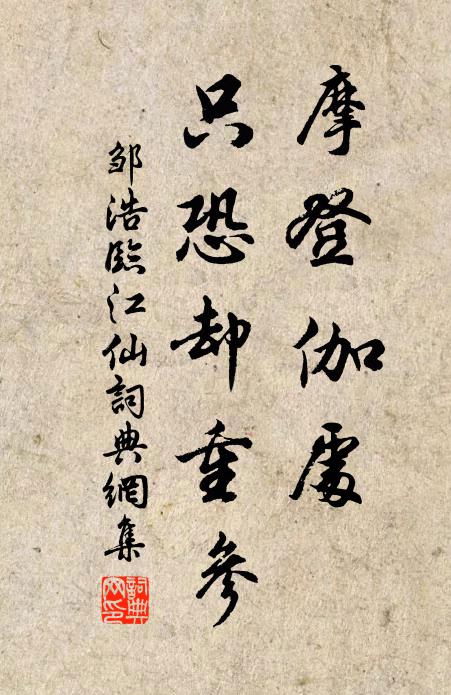 摩登伽處
只恐却重參
邹浩臨江仙詞典網集
詞典
网印